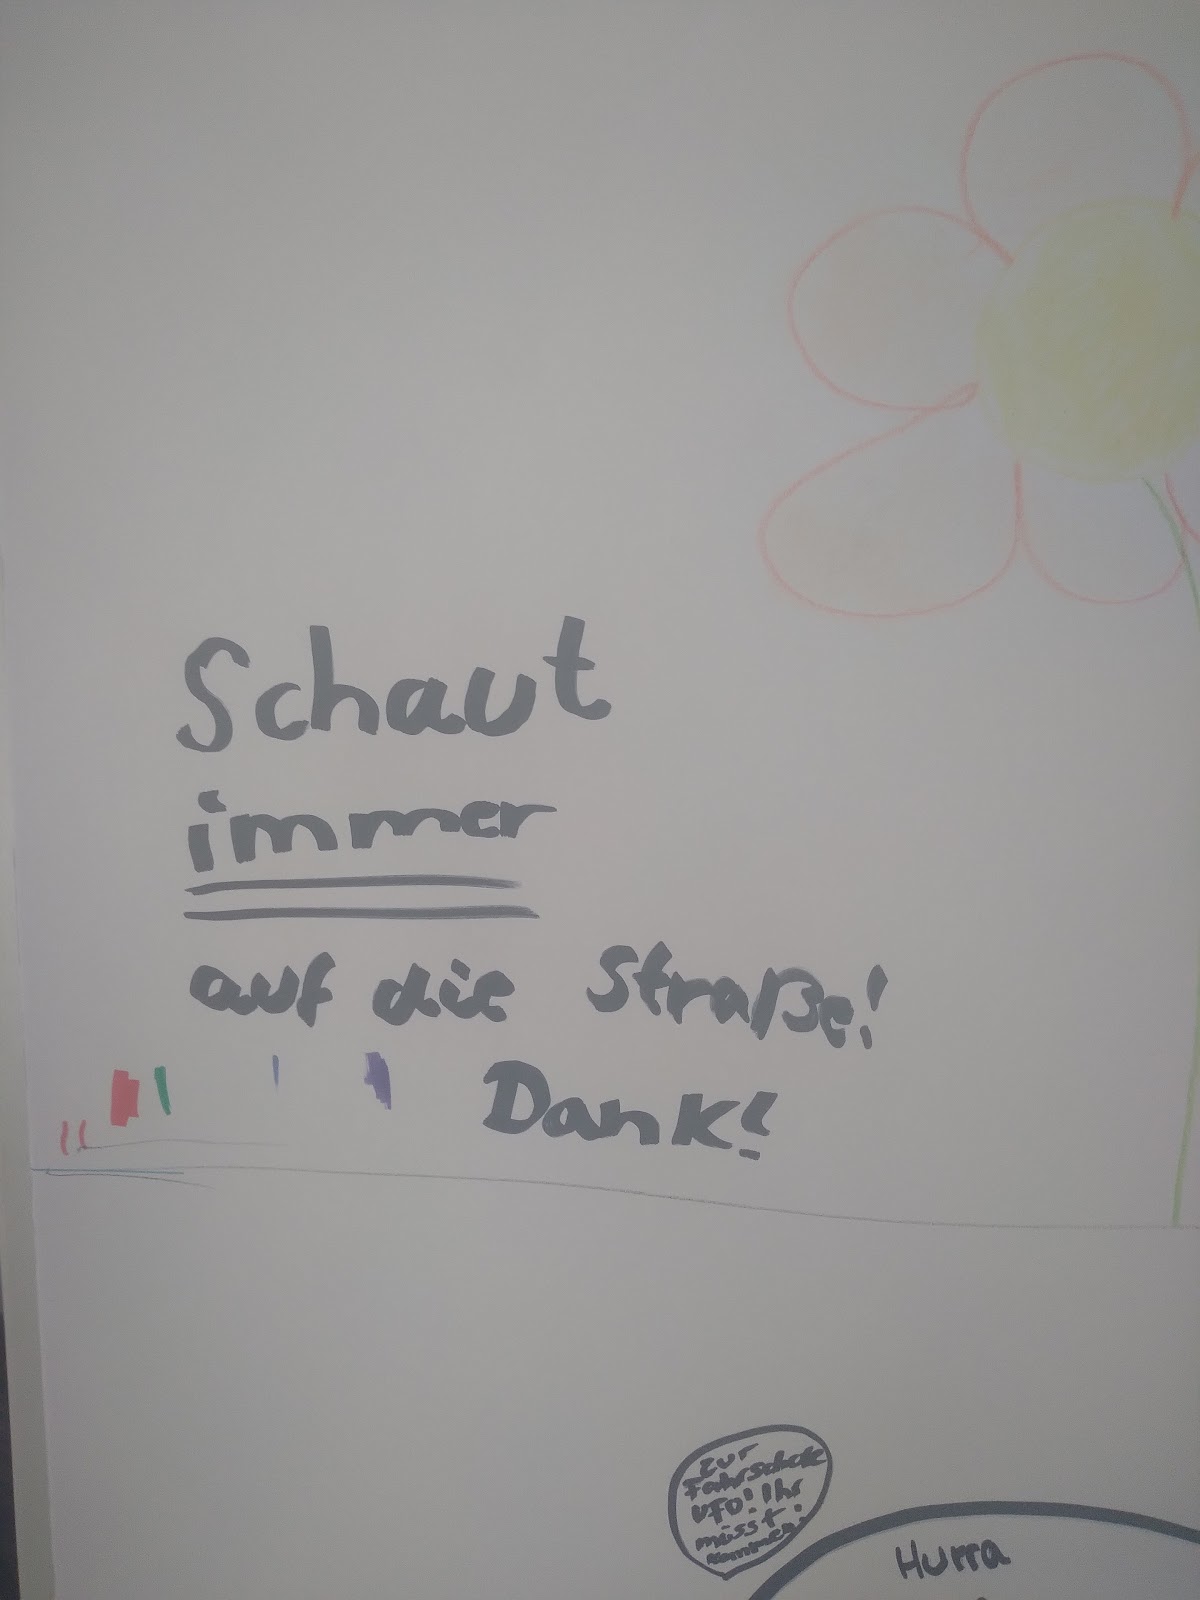 Schaut
immer
auf die Straße!
Dank!
zur
Fahrschule
UFO! Ihr
müsst
kommen!
Hurra